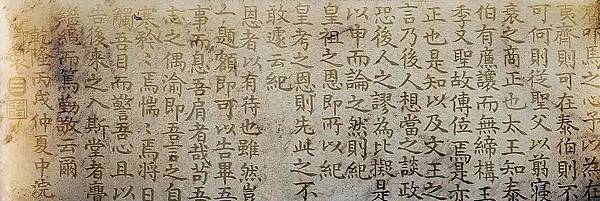 叩馬之心乎以為在
夷齊則可在泰伯則不
可何則從聖父以翦寖
衰之商正也太王知泰
伯有廉讓而無締構王
季又聖故傳位焉亦
正也是知以及文王之
言乃後人想當之談政
恐後人之謬為比擬是
以申而論之然則紀
皇祖之恩即所以紀
皇考之恩則先此之不
敢遽云紀
恩者以有待也雖然豈
一題額即可以告畢吾
事而息吾肩者哉苟吾
志之偶渝即吾言之自
寒於〻焉惴〻焉將日
觸吾目而警吾心且以
告後來之入斯堂者冀
繼繩而篤勤敬云爾
乾隆丙戌仲夏中浣
御筆